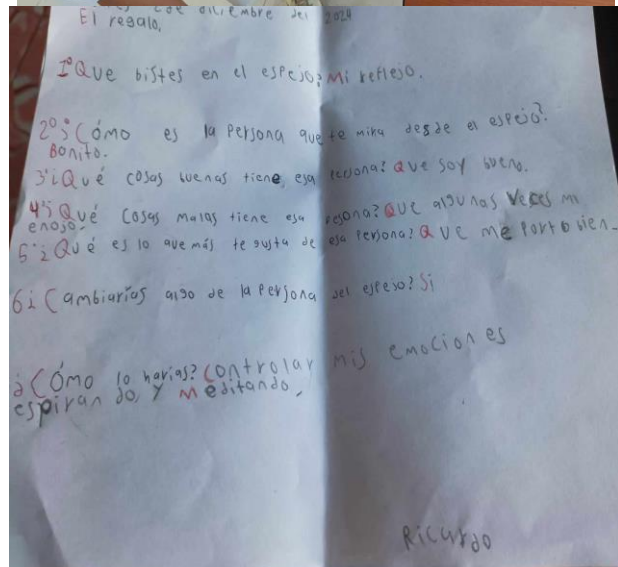 de diciembre del 2024
El regalo.
1° Que bistes en el espejo? Mi reflejo.
2° ¿Cómo es la persona que te mira desde el espejo?
Bonito.
3° ¿Qué cosas buenas tiene esa persona? Que soy bueno.
4° ¿Qué cosas malas tiene esa persona? Que algunas veces mi
enojo.
5° ¿Qué es lo que más te gusta de esa persona? Que me porto bien.
6 ¿Cambiarías algo de la persona del espejo? Si
¿Cómo lo harias? Controlar mis emociones
espirando, y meditando.
Ricardo